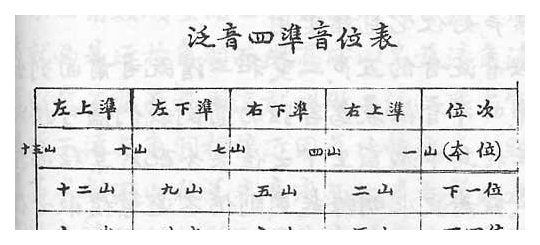 泛音四準音位表
左上準 左下準 右下準 右上準 位次
十三山 十山 七山 四山 一山 (本位)
十二山 九山 五山 二山 下一位